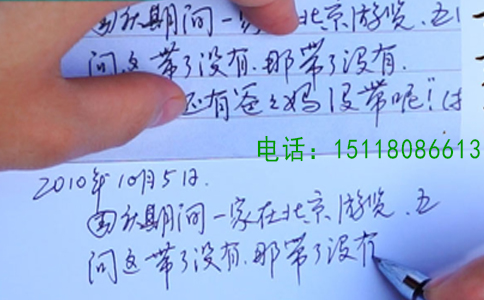 国庆期间一家在北京游览.五
问这带了没有.那带了没有.
还有爸爸妈妈没带呢!"
电话：15118086613
2010年10月5日.
国庆期间一家在北京游览.五
问这带了没有.那带了没有